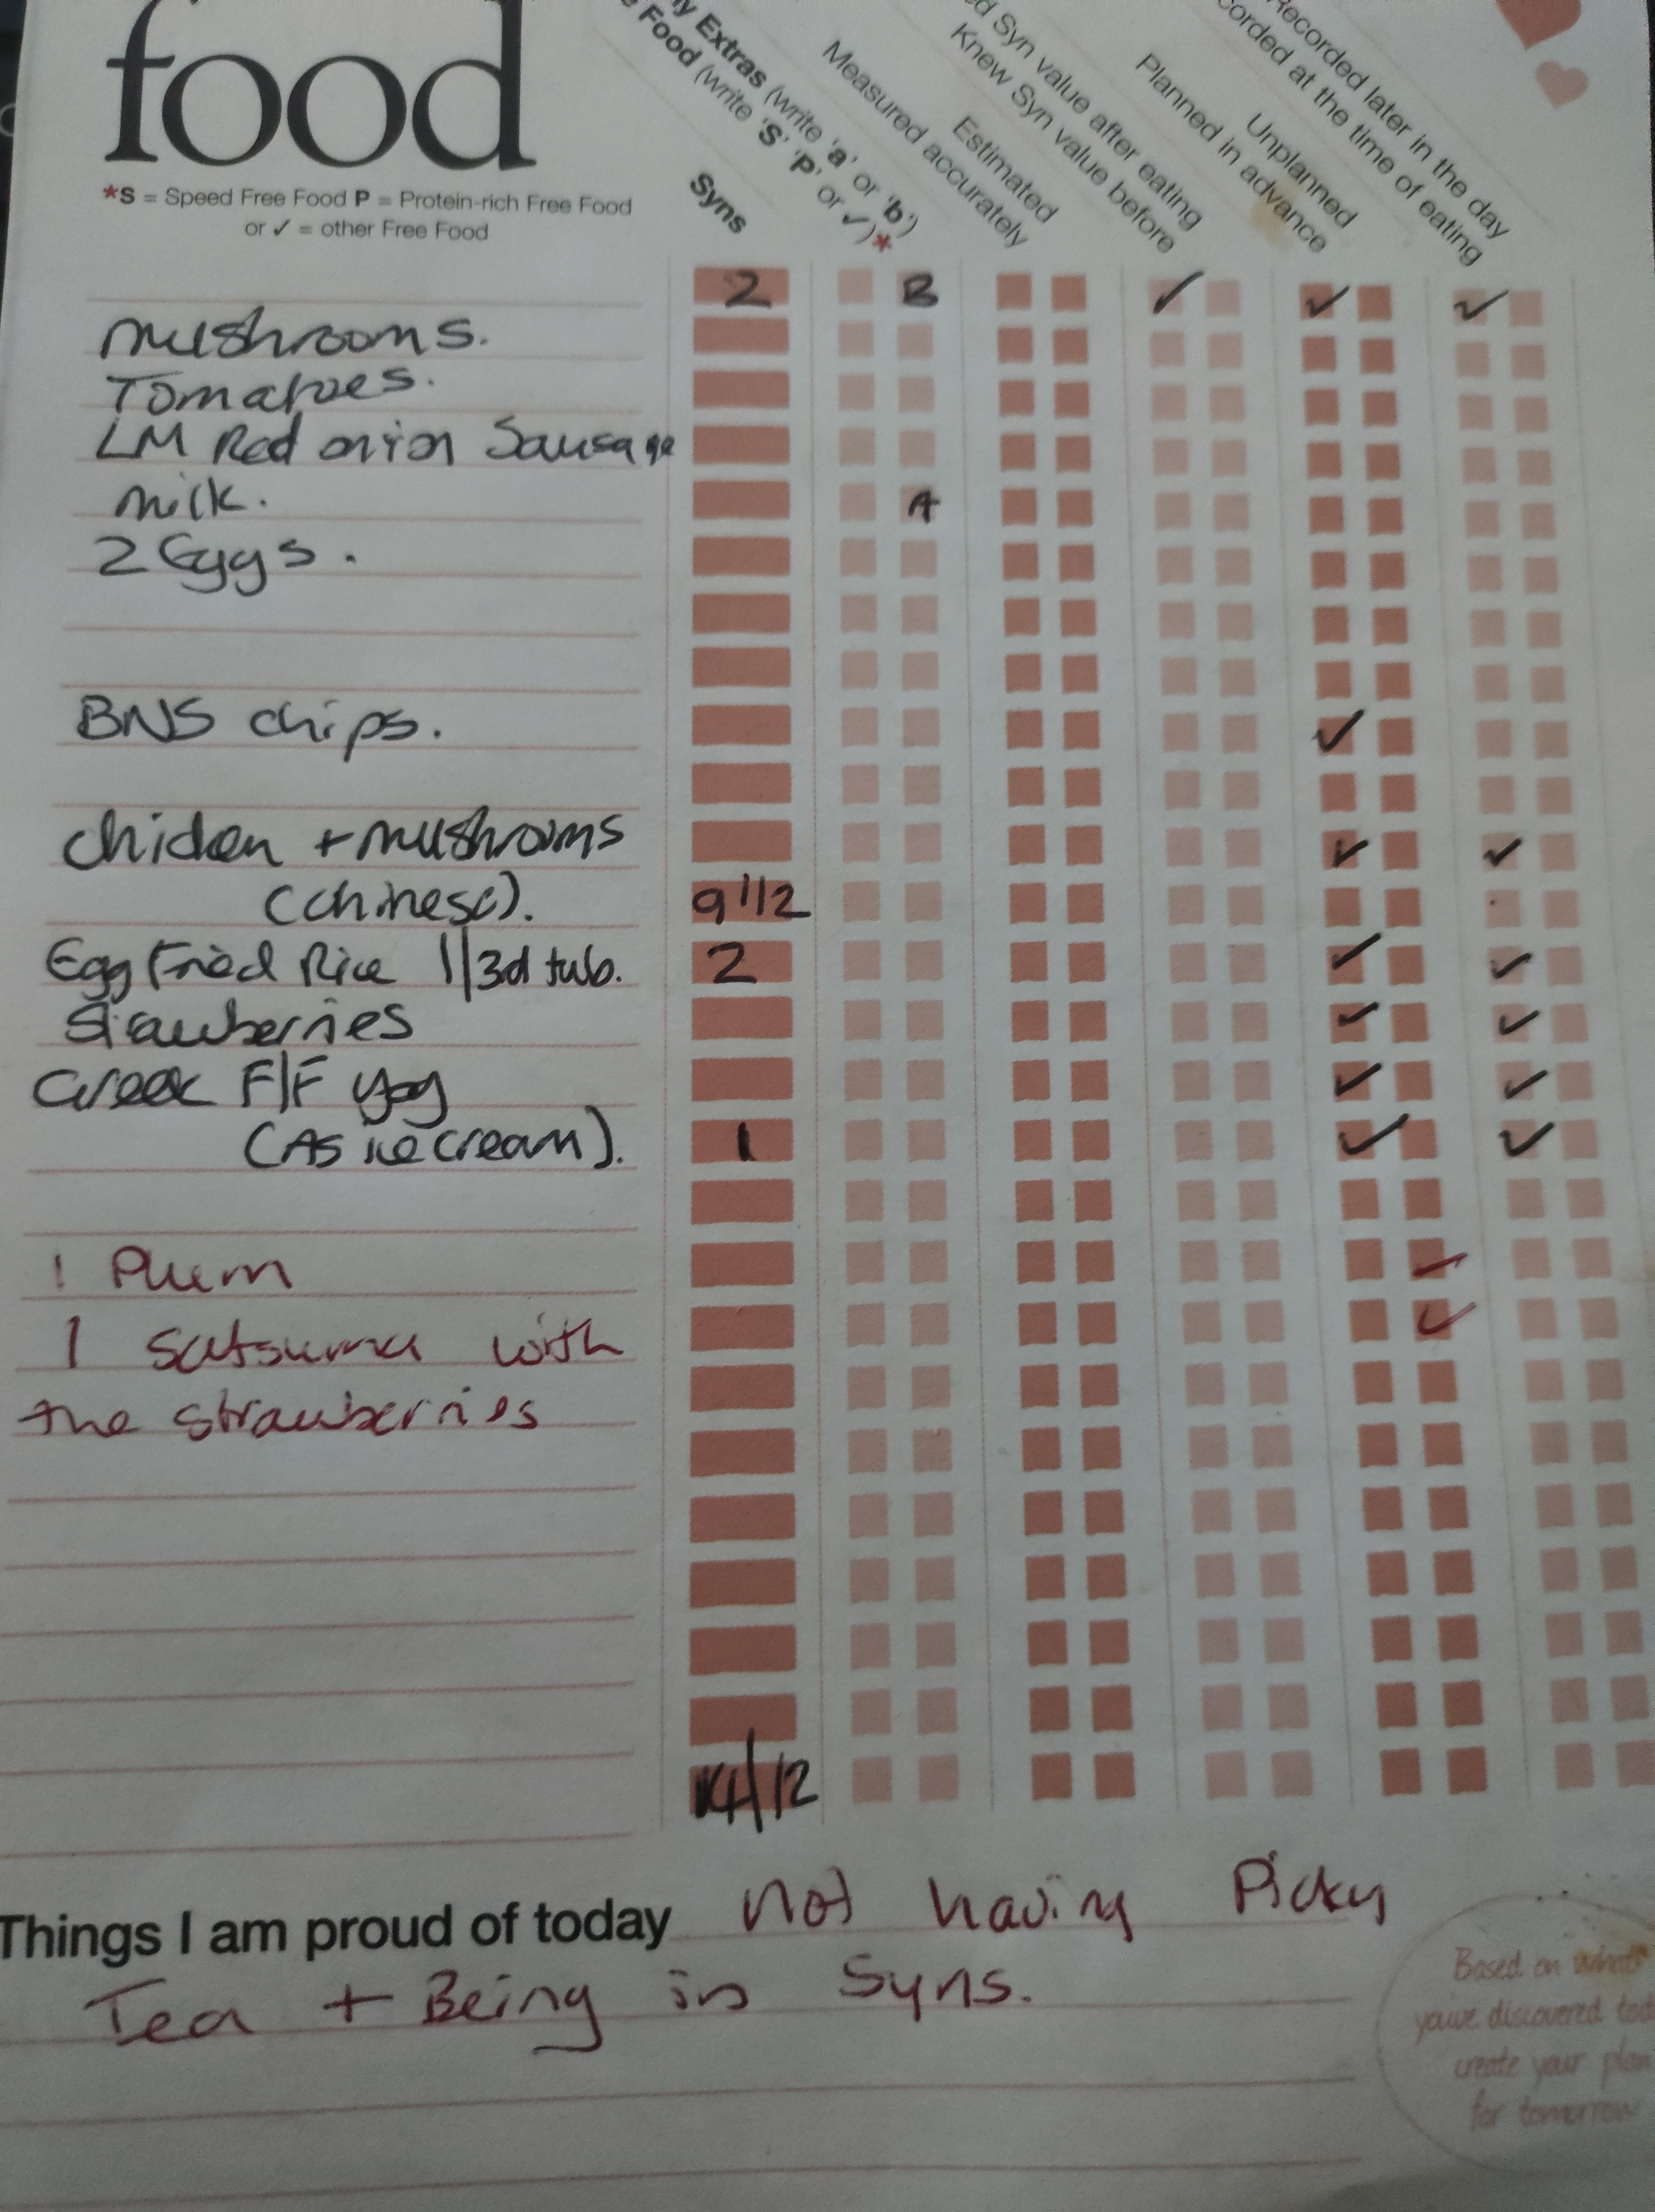 food
*S = Speed Free Food P = Protein-rich Free Food
or ✓ = other Free Food
Syns
Food (write 'S' 'P' or ✓)*
Extras (write 'a' or 'b')
Measured accurately
Estimated
Knew Syn value before
Syn value after eating
Planned in advance
Unplanned
at the time of eating
Recorded later in the day
2 B ✓ ✓ ✓
mushrooms.
Tomatoes.
LM Red onion Sausage
milk. A
2 Eggs.
BNS chips. ✓
Chicken + mushrooms ✓ ✓
(chinese). 9 1/2
Egg Fried Rice 1/3d tub. 2 ✓ ✓
Strawberries ✓ ✓
Greek F/F yog ✓ ✓
(As ice cream). 1 ✓ ✓
1 Plum ✓
1 Satsuma with ✓
the strawberries
14/12
Things I am proud of today not having Picky
Tea + Being in Syns.
Based on what
you've discovered
create your plan
for tomorrow